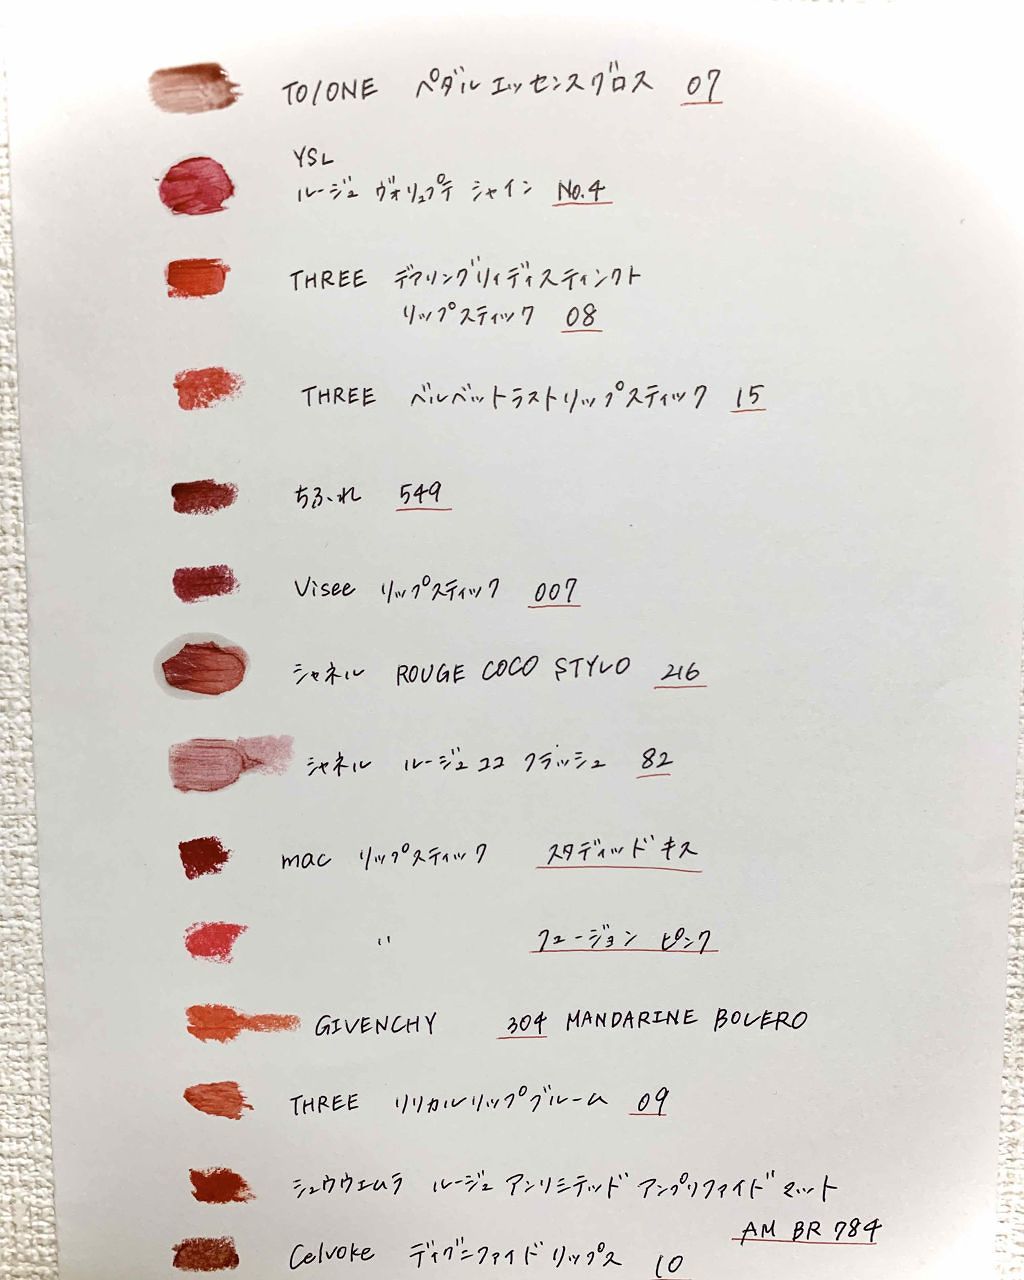 TO/ONE ペダルエッセンスグロス 07
YSL
ルージュ ヴォリュプテ シャイン No.4
THREE デアリングリィディスティンクト
リップスティック 08
THREE ベルベットラストリップスティック 15
ちふれ 549
Visee リップスティック 007
シャネル ROUGE COCO STYLO 216
シャネル ルージュココ フラッシュ 82
mac リップスティック スタディッドキス
〃 フュージョン ピンク
GIVENCHY 304 MANDARINE BOLERO
THREE リリカルリップブルーム 09
シュウウエムラ ルージュ アンリミテッド アンプリファイド マット
AM BR 784
Celvoke ディグニファイドリップス 10